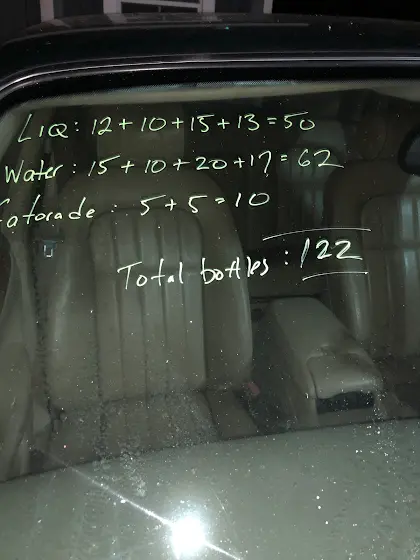 LIQ: 12+10+15+13=50
Water: 15+10+20+17=62
Gatorade: 5+5=10
Total bottles: 122